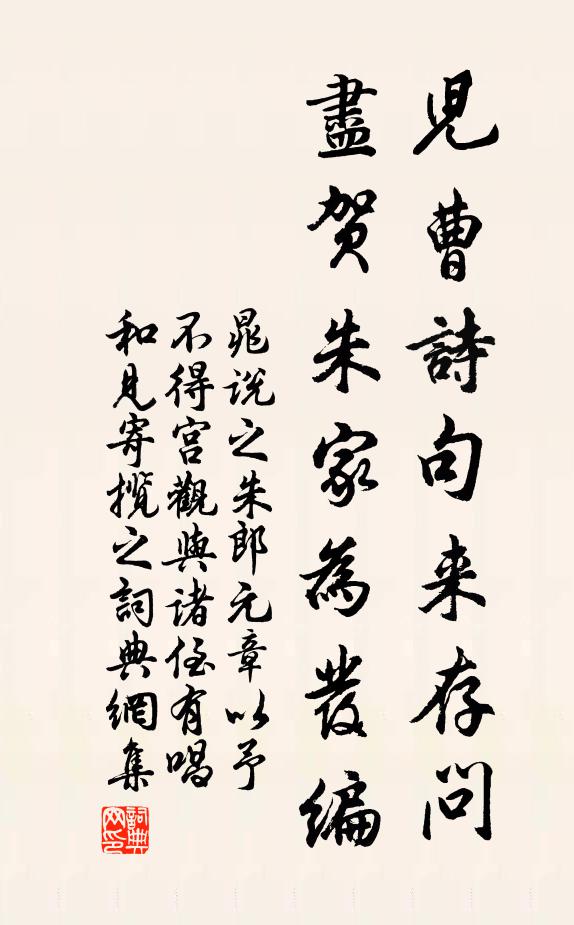 兒曹詩句来存問
盡賀朱家為發編
晁說之朱郎元章以予
不得宮觀與諸侄有唱
和見寄攬之詞典網集
詞典网印